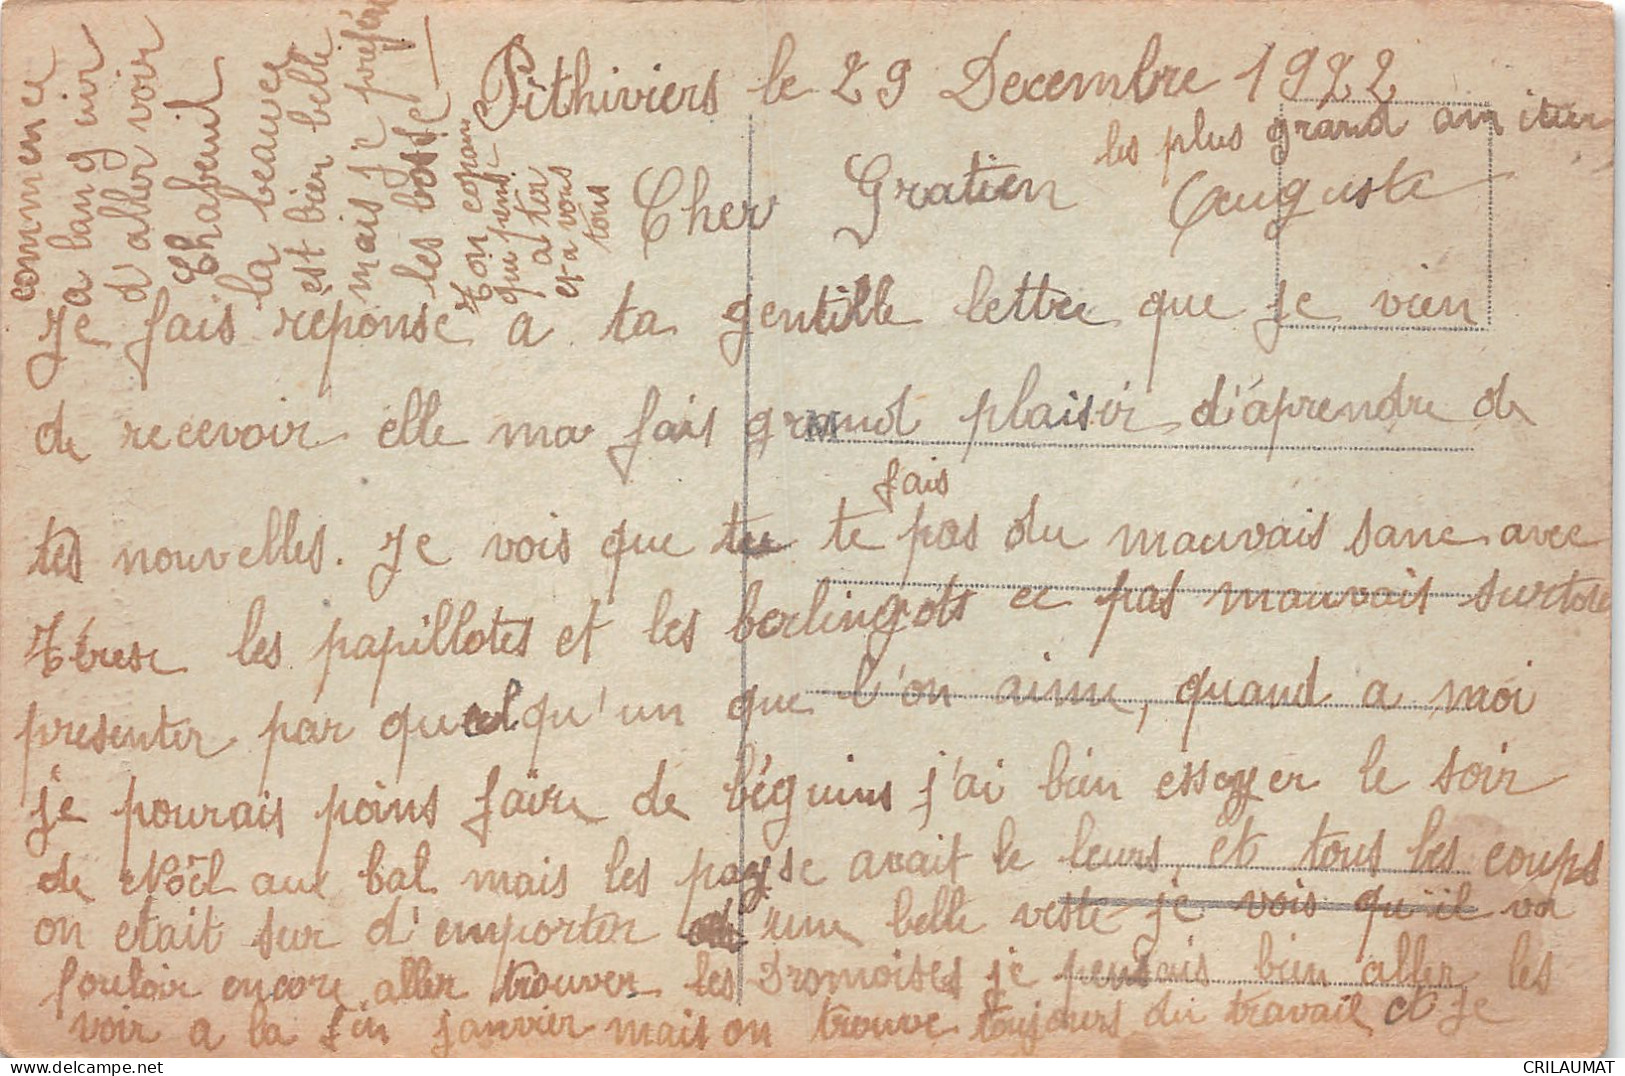 Pithiviers le 29 Decembre 1922
Cher Gratien
Je fais reponse a ta gentille lettre que je vien
de recevoir elle ma fais grand plaisir d'áprendre de
tes nouvelles. Je vois que tu te fais pas du mauvais sanc avec
Térese les papillotes et les berlingots ce pas mauvais surtout
presenter par quelqu'un que l'on aime, quand a moi
je pourais poins faire de béguins j'ai bien essayer le soir
de Noël aux bal mais les payse avait le leurs et tous les coups
on etait sur d'emporter une belle veste je vois qu'il va
fouloir encore aller trouver les Dromoises je pensais bien aller les
voir a la fin janvier mais on trouve toujours du travail et je
commence
a languir
d'aller voir
Chabeuil
la beauce
est bien belle
mais je préfére
les bosse
Ton copain
qui pense
a toi
et a vous
tous
les plus grand
Auguste